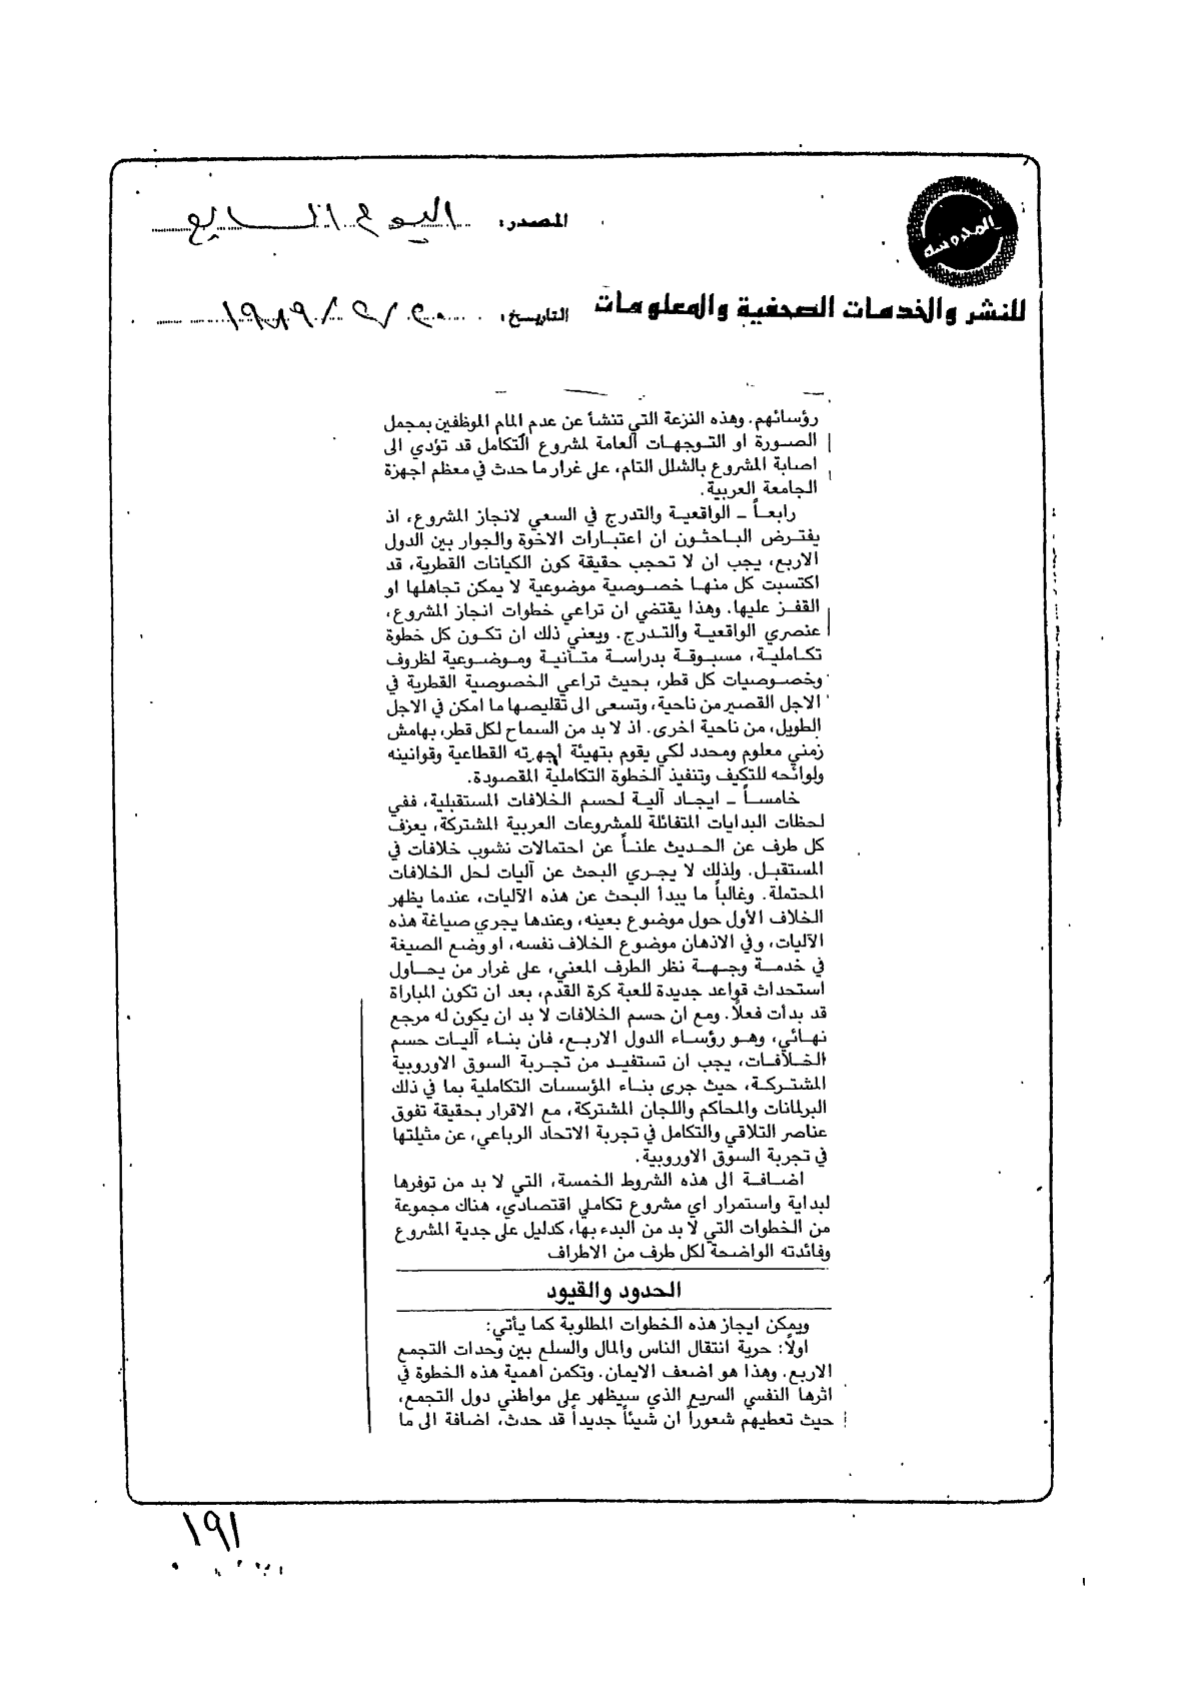 المحروسة
للنشر والخدمات الصحفية والمعلومات
المصدر: اليوم السابع
التاريخ: ١٩٨٩/
رؤسائهم. وهذه النزعة التي تنشأ عن عدم إلمام الموظفين بمجمل
الصورة او التوجهات العامة لمشروع التكامل قد تؤدي الى
اصابة المشروع بالشلل التام، على غرار ما حدث في معظم اجهزة
الجامعة العربية.
رابعاً ـ الواقعية والتدرج في السعي لانجاز المشروع، اذ
يفترض الباحثون ان اعتبارات الاخوة والجوار بين الدول
الاربع، يجب ان لا تحجب حقيقة كون الكيانات القطرية، قد
اكتسبت كل منها خصوصية موضوعية لا يمكن تجاهلها او
القفز عليها. وهذا يقتضي ان تراعي خطوات انجاز المشروع،
عنصري الواقعية والتدرج. ويعني ذلك ان تكون كل خطوة
تكاملية، مسبوقة بدراسة متأنية وموضوعية لظروف
وخصوصيات كل قطر، بحيث تراعي الخصوصية القطرية في
الاجل القصير من ناحية، وتسعى الى تقليصها ما امكن في الاجل
الطويل، من ناحية اخرى. اذ لا بد من السماح لكل قطر، بهامش
زمني معلوم ومحدد لكي يقوم بتهيئة اجهزته القطاعية وقوانينه
ولوائحه للتكيف وتنفيذ الخطوة التكاملية المقصودة.
خامساً ـ ايجاد آلية لحسم الخلافات المستقبلية، ففي
لحظات البدايات المتفائلة للمشروعات العربية المشتركة، يعزف
كل طرف عن الحديث علناً عن احتمالات نشوب خلافات في
المستقبل. ولذلك لا يجري البحث عن آليات لحل الخلافات
المحتملة. وغالباً ما يبدأ البحث عن هذه الآليات، عندما يظهر
الخلاف الأول حول موضوع بعينه، وعندها يجري صياغة هذه
الآليات، وفي الاذهان موضوع الخلاف نفسه، او وضع الصيغة
في خدمة وجهة نظر الطرف المعني، على غرار من يحاول
استحداث قواعد جديدة للعبة كرة القدم، بعد ان تكون المباراة
قد بدأت فعلاً. ومع ان حسم الخلافات لا بد ان يكون له مرجع
نهائي، وهو رؤساء الدول الاربع، فان بناء آليات حسم
الخلافات، يجب ان تستفيد من تجربة السوق الاوروبية
المشتركة، حيث جرى بناء المؤسسات التكاملية بما في ذلك
البرلمانات والمحاكم واللجان المشتركة، مع الاقرار بحقيقة تفوق
عناصر التلاقي والتكامل في تجربة الاتحاد الرباعي، عن مثيلتها
في تجربة السوق الاوروبية.
اضافة الى هذه الشروط الخمسة، التي لا بد من توفرها
لبداية واستمرار اي مشروع تكاملي اقتصادي، هناك مجموعة
من الخطوات التي لا بد من البدء بها، كدليل على جدية المشروع
وفائدته الواضحة لكل طرف من الاطراف
الحدود والقيود
ويمكن ايجاز هذه الخطوات المطلوبة كما يأتي:
اولاً: حرية انتقال الناس والمال والسلع بين وحدات التجمع
الاربع. وهذا هو اضعف الايمان. وتكمن اهمية هذه الخطوة في
اثرها النفسي السريع الذي سيظهر على مواطني دول التجمع،
حيث تعطيهم شعوراً ان شيئاً جديداً قد حدث، اضافة الى ما
١٩١